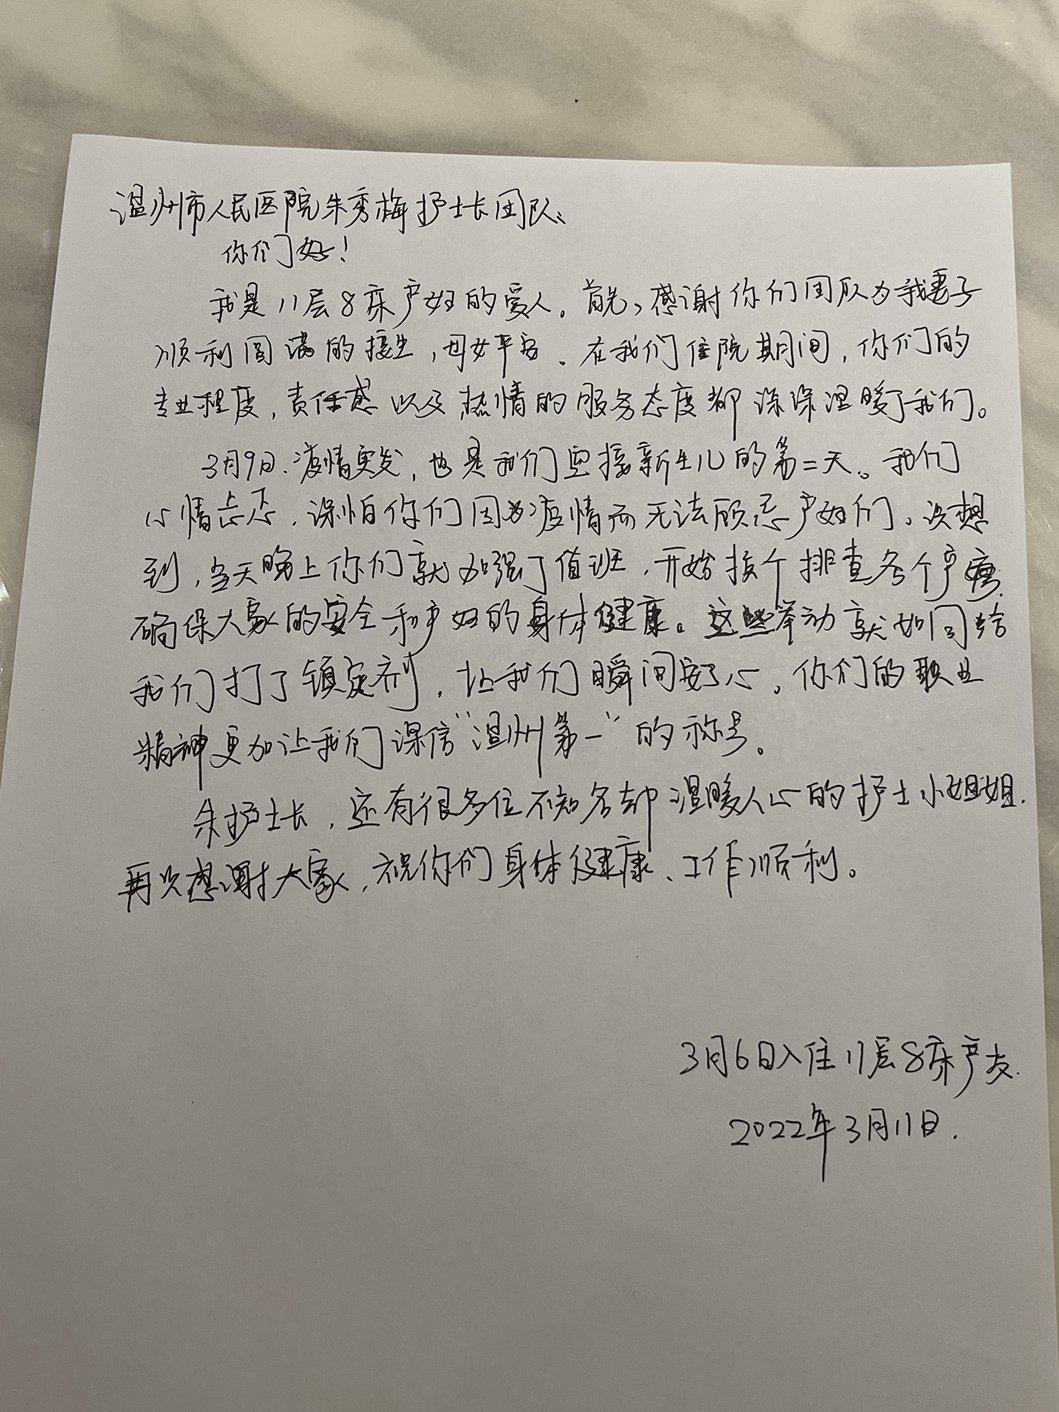 温州市人民医院朱秀梅护士长团队：
你们好！
我是11层8床产妇的爱人。首先，感谢你们团队为我妻子
顺利圆满的接生，母女平安。在我们住院期间，你们的
专业程度，责任感以及热情的服务态度都深深温暖了我们。
3月9日，疫情突发，也是我们迎接新生儿的第二天。我们
心情忐忑，深怕你们因为疫情而无法顾忌产妇们。没想
到，当天晚上你们就加强了值班，开始挨个排查各个产房，
确保大家的安全和产妇的身体健康。这些举动就如同给
我们打了镇定剂，让我们瞬间安了心。你们的职业
精神更加让我们深信“温州第一”的称号。
朱护士长，还有很多位不知名却温暖人心的护士小姐姐，
再次感谢大家，祝你们身体健康、工作顺利。
3月6日入住11层8床产友.
2022年3月11日.